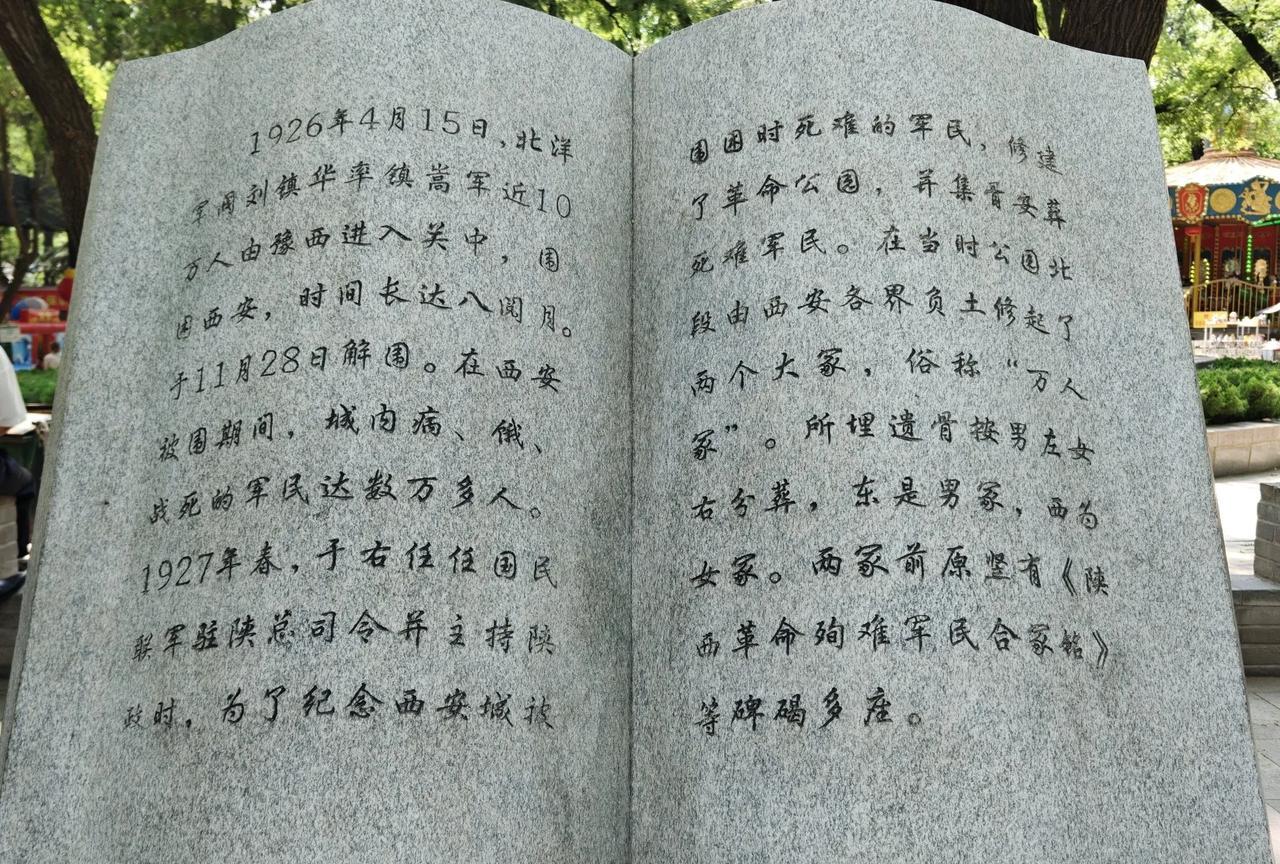 1926年4月15日,北洋
军阀刘镇华率镇嵩军近10
万人由豫西进入关中，围
困西安，时间长达八阅月。
于11月28日解围。在西安
被围期间，城内病、饿、
战死的军民达数万多人。
1927年春，于右任任国民
联军驻陕总司令并主持陕
政时，为了纪念西安城被
围困时死难的军民，修建
了革命公园，并集骨安葬
死难军民。在当时公园北
段由西安各界负土修起了
两个大冢，俗称“万人
冢”。所埋遗骨按男左女
右分葬，东是男冢，西为
女冢。两冢前原竖有《陕
西革命殉难军民合冢铭》
等碑碣多座。